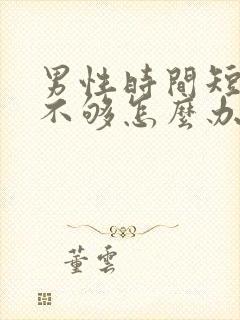 男性時間短
不够怎麼办
董雲